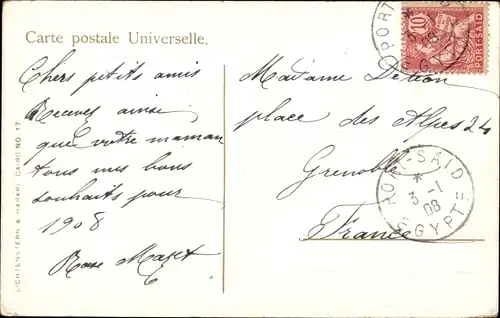 Carte postale Universelle.
Chers petits amis
Recevez ainsi
que votre maman
tous mes bons
souhaits pour
1908
Rose
Madame
place des Alpes 24
Grenoble
France
PORT-SAID
*
3 -1
08
EGYPTE
10
PORT-SAID
LICHTENSTERN & HARARI, CAIRO NO. 17